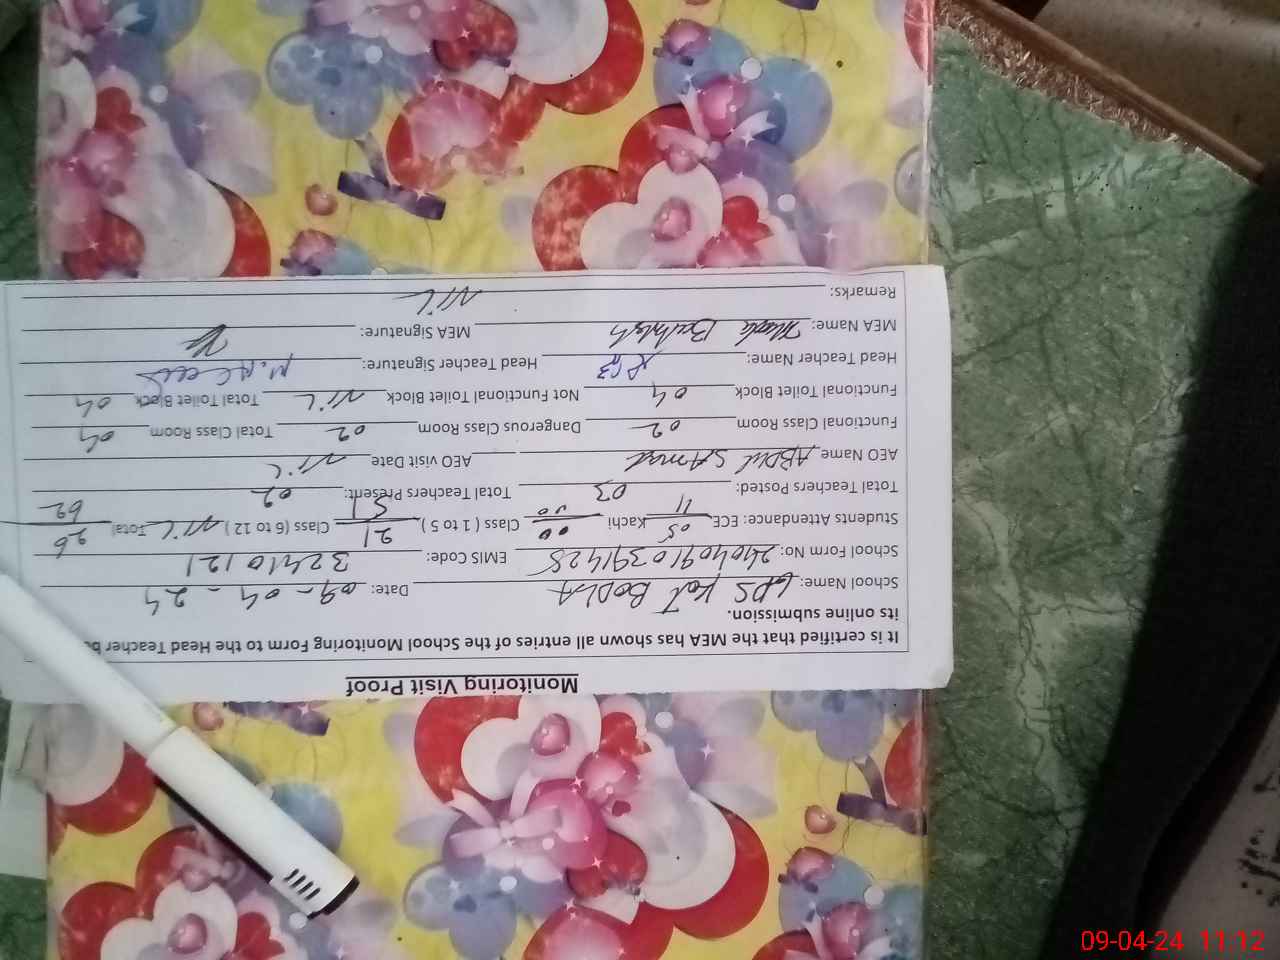 Monitoring Visit Proof
It is certified that the MEA has shown all entries of the School Monitoring Form to the Head Teacher
its online submission.
School Name: GPS Kot BODLA Date: 09-04-24
School Form No: 24040910391428 EMIS Code: 32410121
Students Attendance: ECE 05/11 Kachi 00/00 Class ( 1 to 5 ) 21/51 Class (6 to 12 ) NIL Total 26/62
Total Teachers Posted: 03 Total Teachers Present: 02
AEO Name ABDUL SAmad AEO visit Date NIL
Functional Class Room 02 Dangerous Class Room 02 Total Class Room 04
Functional Toilet Block 04 Not Functional Toilet Block NIL Total Toilet Block 04
Head Teacher Name: Head Teacher Signature:
MEA Name: Bakhsh MEA Signature:
Remarks: NIL
09-04-24 11:12